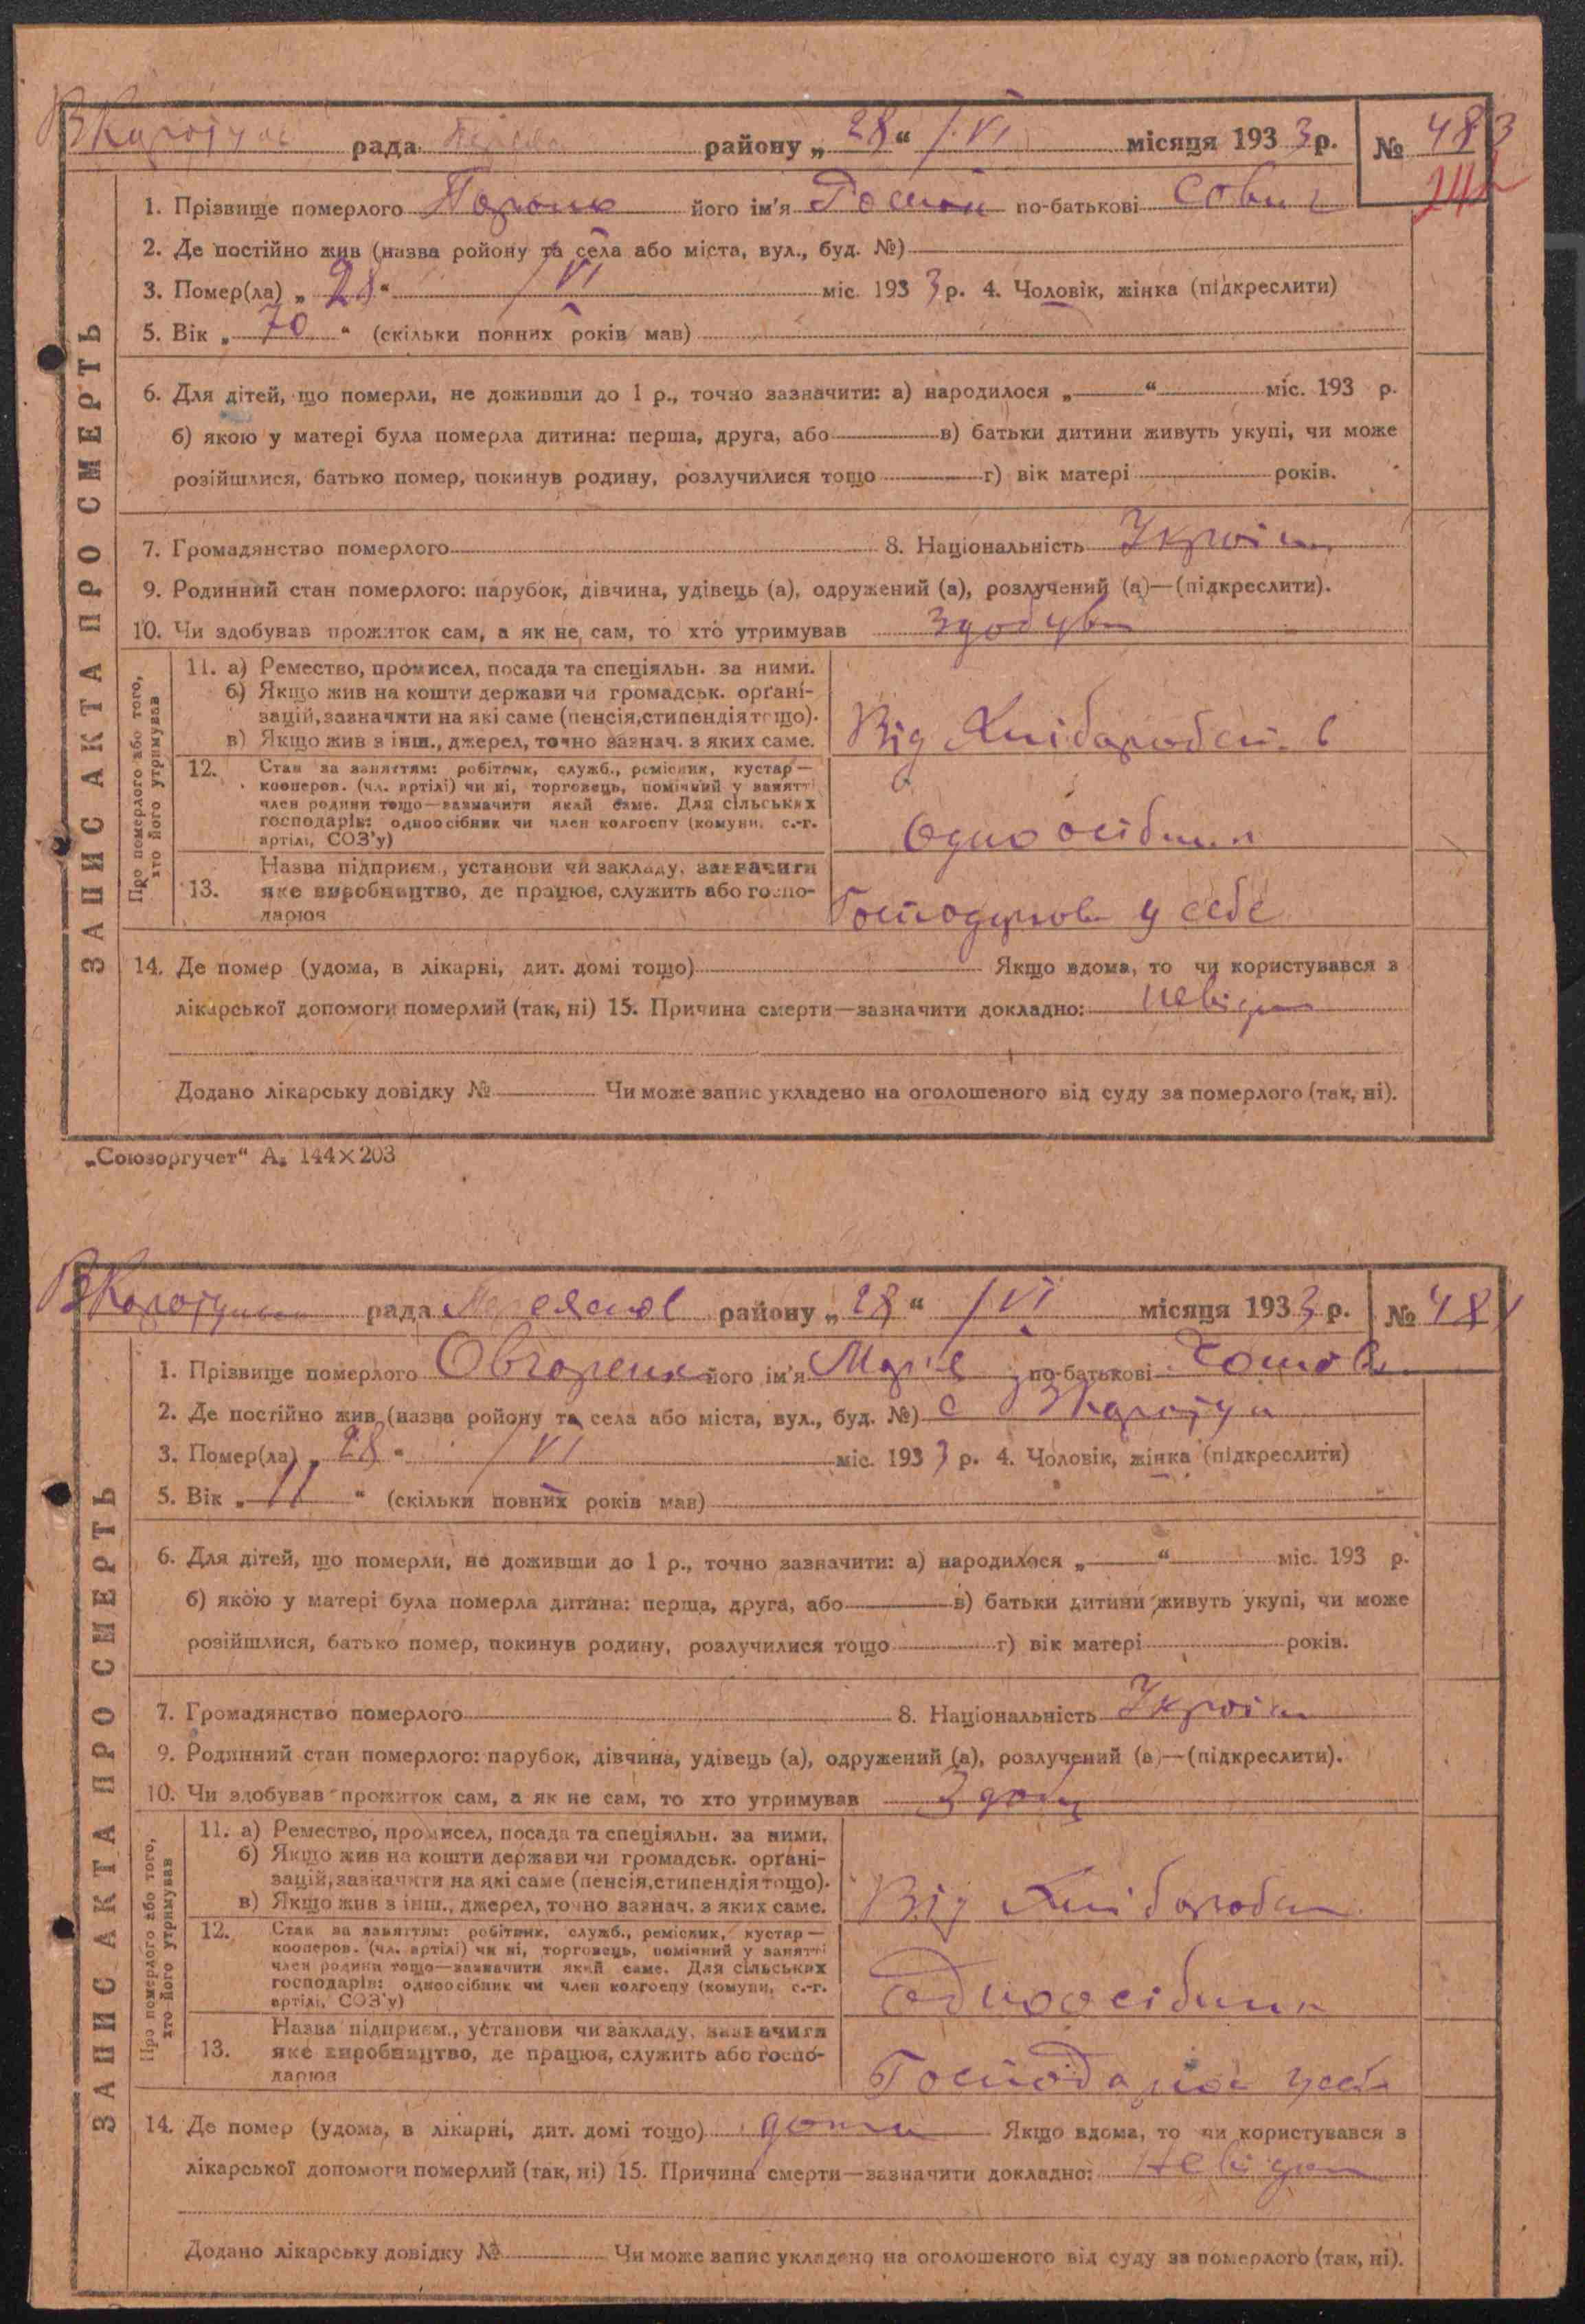 ВКаратул рада району „28“ /VI місяця 1933 р. № 483
1. Прізвище померлого його ім'я по-батькові
2. Де постійно жив (назва ройону та села або міста, вул., буд. №)
3. Помер(ла) „28“ /VI міс. 1933 р. 4. Чоловік, жінка (підкреслити)
5. Вік „70“ (скільки повних років мав)
6. Для дітей, що померли, не доживши до 1 р., точно зазначити: а) народилося „ “ міс. 193 р.
б) якою у матері була померла дитина: перша, друга, або в) батьки дитини живуть укупі, чи може
розійшлися, батько помер, покинув родину, розлучилися тощо г) вік матері років.
7. Громадянство померлого 8. Національність Україн
9. Родинний стан померлого: парубок, дівчина, удівець (а), одружений (а), розлучений (а)—(підкреслити).
10. Чи здобував прожиток сам, а як не сам, то хто утримував здобув
ЗАПИС АКТА ПРО СМЕРТЬ
Про померлого або того, хто його утримував
11. а) Ремество, промисел, посада та спеціяльн. за ними.
б) Якщо жив на кошти держави чи громадськ. орґані-
зацій, зазначити на які саме (пенсія, стипендія тощо).
в) Якщо жив з інш., джерел, точно зазнач. з яких саме.
Від
12. Стан за заняттям: робітник, служб., ремісник, кустар—
кооперов. (чл. артілі) чи ні, торговець, помічний у занятті
член родини тощо—зазначити який саме. Для сільських
господарів: одноосібник чи член колгоспу (комуни, с.-г.
артілі, СОЗ'у)
Одноосібник
13. Назва підприєм., установи чи закладу, зазначити
яке виробництво, де працює, служить або госпо-
дарює
у себе
14. Де помер (удома, в лікарні, дит. домі тощо) Якщо вдома, то чи користувався з
лікарської допомоги померлий (так, ні) 15. Причина смерти—зазначити докладно: невідом
Додано лікарську довідку № Чи може запис укладено на оголошеного від суду за померлого (так, ні).
„Союзоргучет“ А₅ 144×203
рада Переяслов району „28“ /VI місяця 1933 р. № 484
1. Прізвище померлого Овчаренко його ім'я Марія по-батькові
2. Де постійно жив (назва ройону та села або міста, вул., буд. №) с
3. Помер(ла) „28“ /VI міс. 1933 р. 4. Чоловік, жінка (підкреслити)
5. Вік „11“ (скільки повних років мав)
6. Для дітей, що померли, не доживши до 1 р., точно зазначити: а) народилося „ “ міс. 193 р.
б) якою у матері була померла дитина: перша, друга, або в) батьки дитини живуть укупі, чи може
розійшлися, батько помер, покинув родину, розлучилися тощо г) вік матері років.
7. Громадянство померлого 8. Національність Україн
9. Родинний стан померлого: парубок, дівчина, удівець (а), одружений (а), розлучений (а)—(підкреслити).
10. Чи здобував прожиток сам, а як не сам, то хто утримував Здобу
ЗАПИС АКТА ПРО СМЕРТЬ
Про померлого або того, хто його утримував
11. а) Ремество, промисел, посада та спеціяльн. за ними.
б) Якщо жив на кошти держави чи громадськ. орґані-
зацій, зазначити на які саме (пенсія, стипендія тощо).
в) Якщо жив з інш., джерел, точно зазнач. з яких саме.
Від
12. Стан за заняттям: робітник, служб., ремісник, кустар—
кооперов. (чл. артілі) чи ні, торговець, помічний у занятті
член родини тощо—зазначити який саме. Для сільських
господарів: одноосібник чи член колгоспу (комуни, с.-г.
артілі, СОЗ'у)
Одноосібник
13. Назва підприєм., установи чи закладу, зазначити
яке виробництво, де працює, служить або госпо-
дарює
Господарює у себе
14. Де помер (удома, в лікарні, дит. домі тощо) дома Якщо вдома, то чи користувався з
лікарської допомоги померлий (так, ні) 15. Причина смерти—зазначити докладно: невідом
Додано лікарську довідку № Чи може запис укладено на оголошеного від суду за померлого (так, ні).